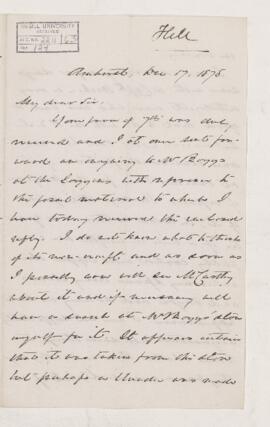 McGILL UNIVERSITY
ARCHIVES
ACC. NO.
REF.
Hill
Amherst, Dec 17, 1878
My dear Sir.
Your favor of 7th was duly
received and I at once sent for-
ward an enquiry to Mr Boggs
at the Joggins with reference to
the fossil material to which I
have today received the enclosed
reply. I do not know what to think
of its non-receipt and as soon as
I possibly can will see McCarthy
about it and if necessary will
have a search at Mr Boggs' store
myself for it. It appears certain
that it was taken from the store
but perhaps a blunder was made